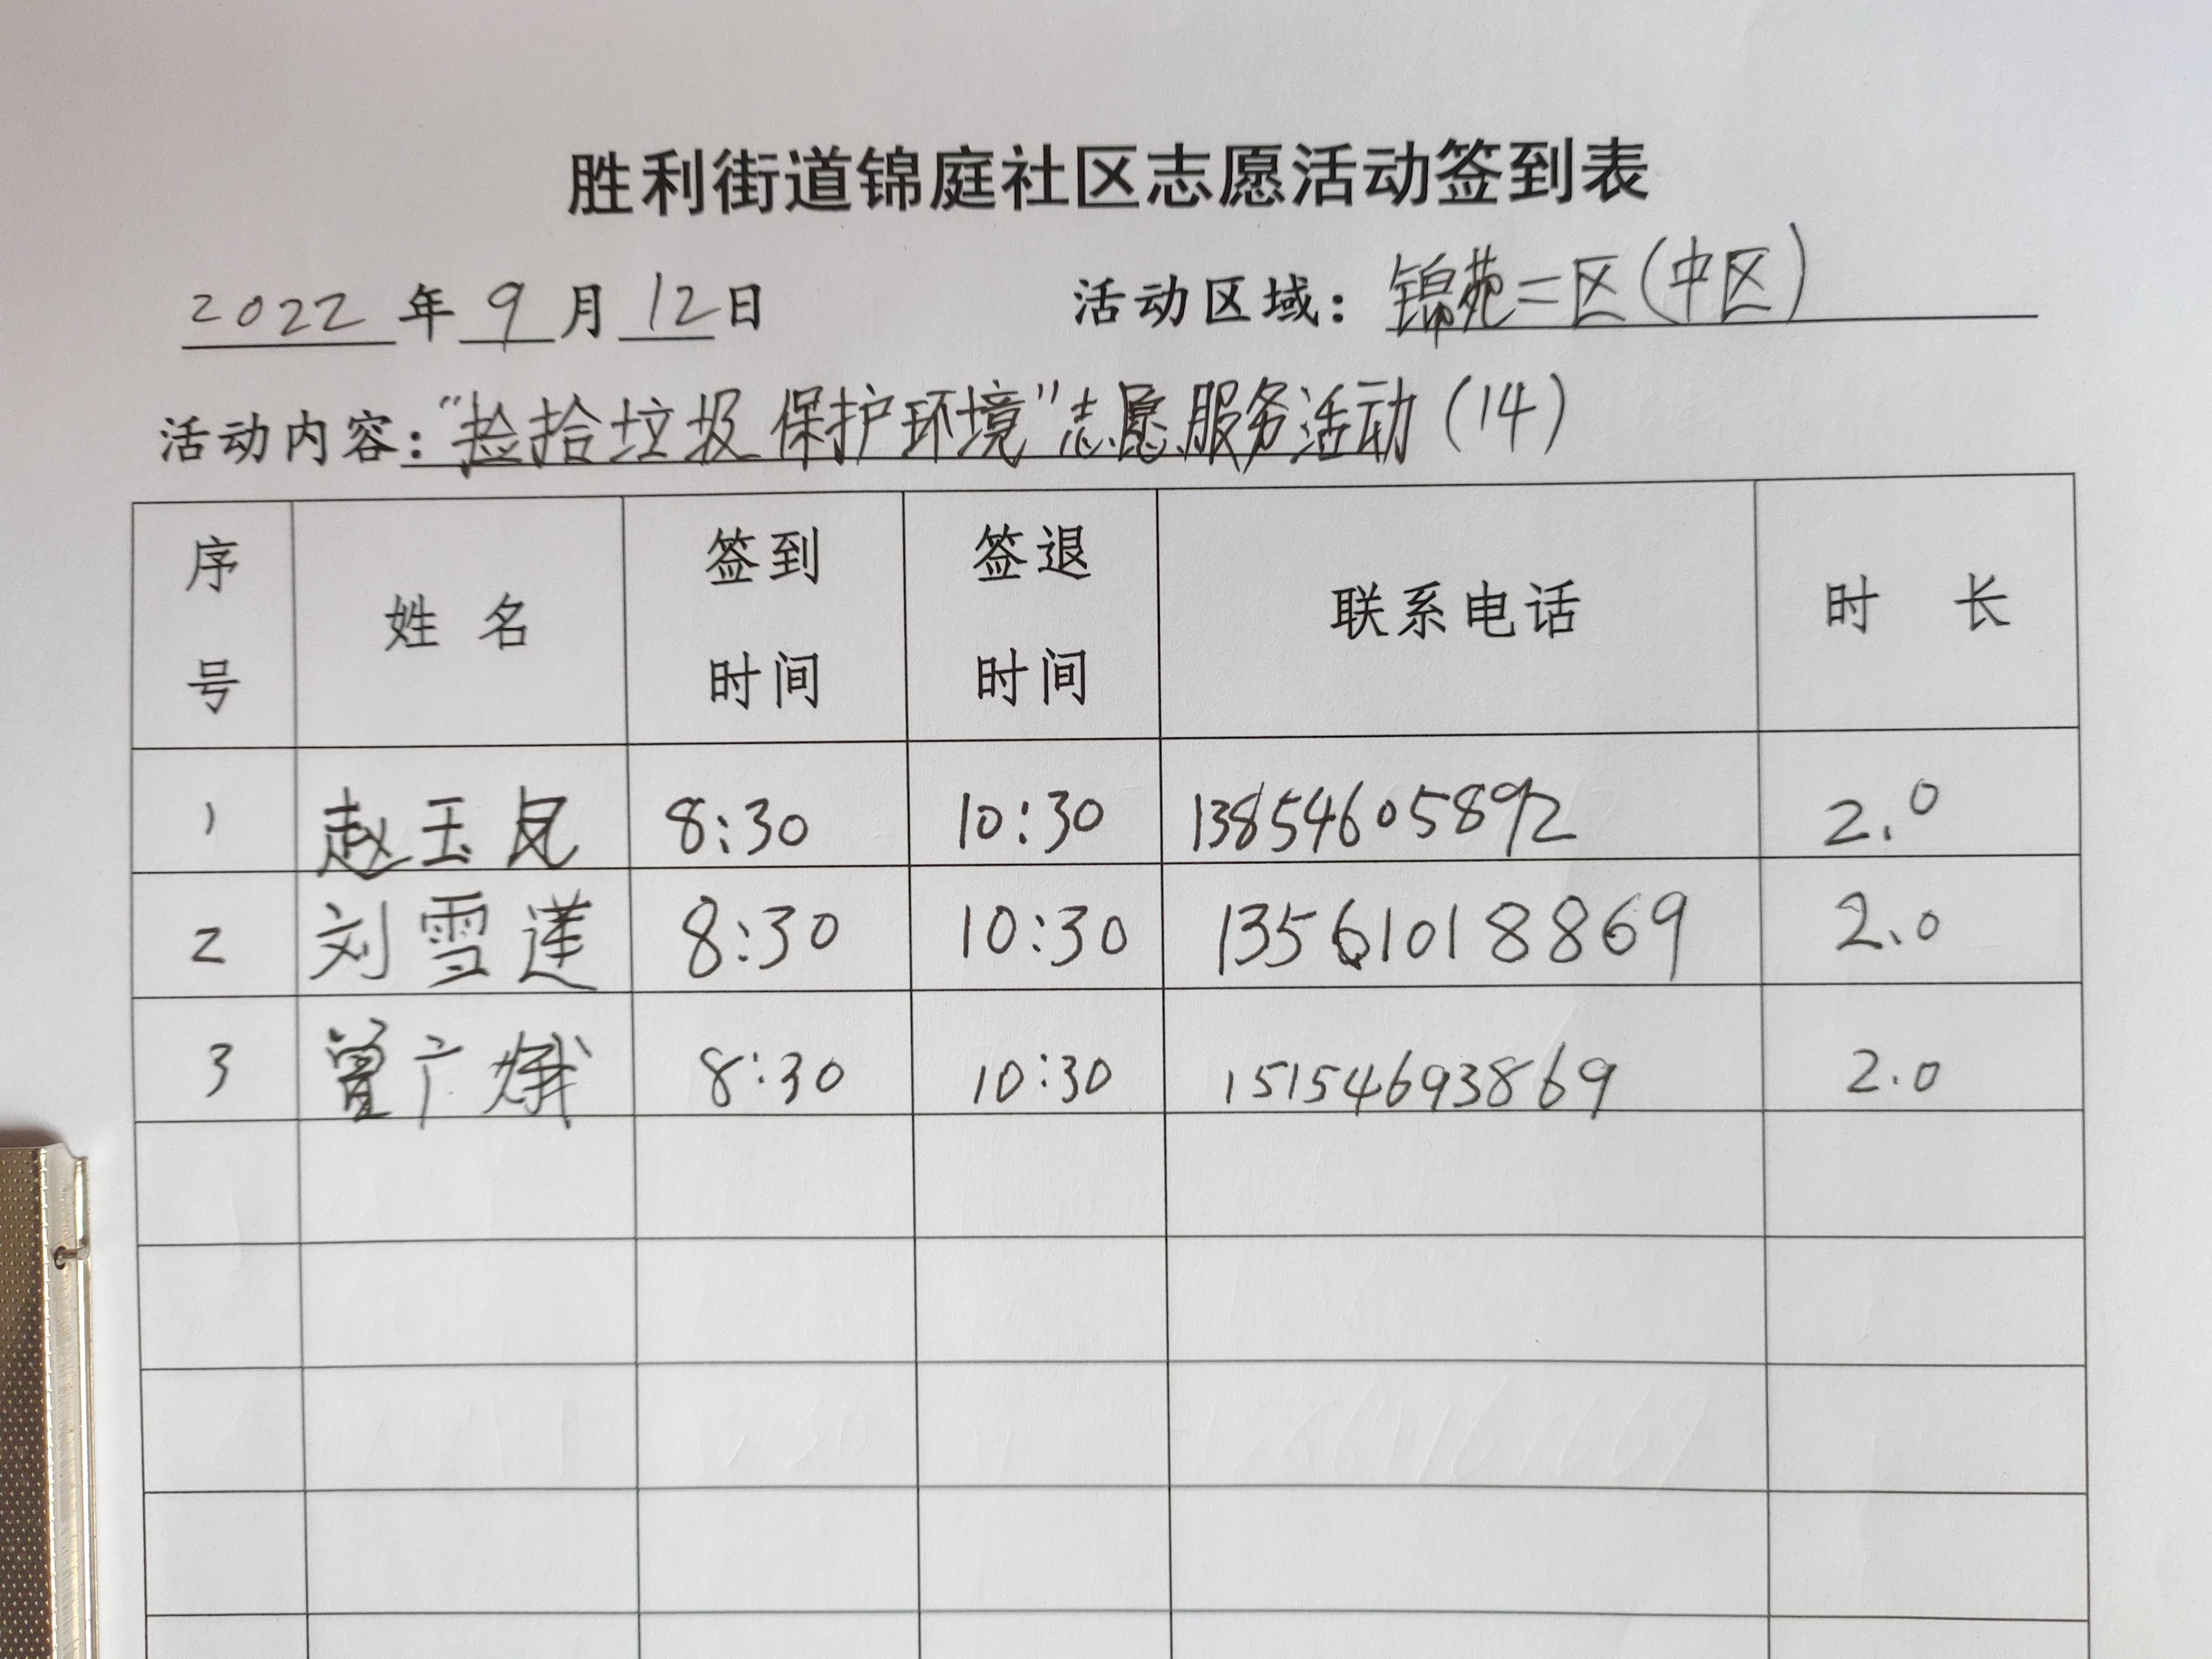 胜利街道锦庭社区志愿活动签到表
2022年9月12日 活动区域：锦苑二区(中区)
活动内容："捡拾垃圾 保护环境"志愿服务活动(14)
序号 姓名 签到时间 签退时间 联系电话 时长
1 赵玉凤 8:30 10:30 13854605892 2.0
2 刘雪莲 8:30 10:30 13561018869 2.0
3 曾广娥 8:30 10:30 15154693869 2.0